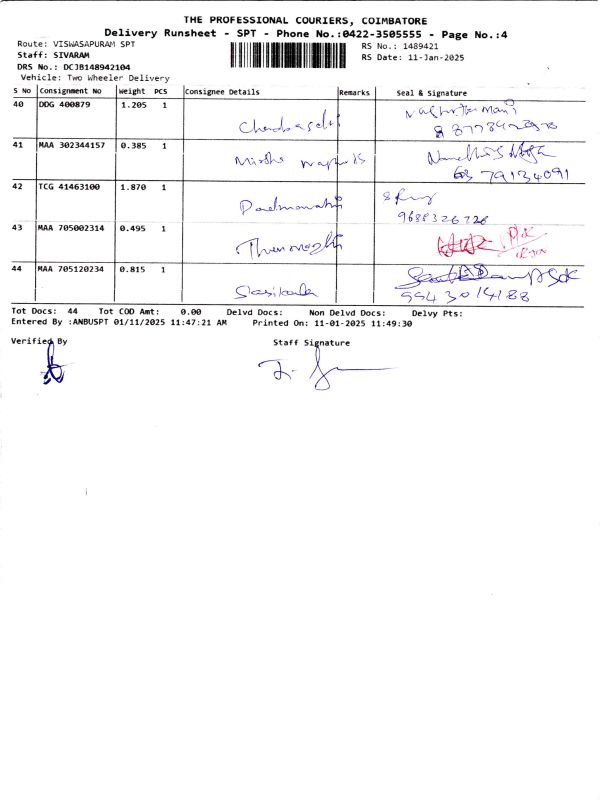 THE PROFESSIONAL COURIERS, COIMBATORE
Delivery Runsheet - SPT - Phone No.:0422-3505555 - Page No.:4
Route: VISWASAPURAM SPT
RS No.: 1489421
Staff: SIVARAM
RS Date: 11-Jan-2025
DRS No.: DCJB148942104
Vehicle: Two Wheeler Delivery
S No Consignment No Weight PCS Consignee Details Remarks Seal & Signature
40 DDG 400879 1.205 1
41 MAA 302344157 0.385 1
79134091
42 TCG 41463100 1.870 1 Padmavathi
9688326728
43 MAA 705002314 0.495 1
44 MAA 705120234 0.815 1 Sasikala
9943014188
Tot Docs: 44 Tot COD Amt: 0.00 Delvd Docs: Non Delvd Docs: Delvy Pts:
Entered By :ANBUSPT 01/11/2025 11:47:21 AM Printed On: 11-01-2025 11:49:30
Verified By Staff Signature